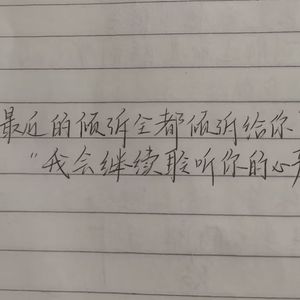 最近的倾诉全都倾诉给你
"我会继续聆听你的心